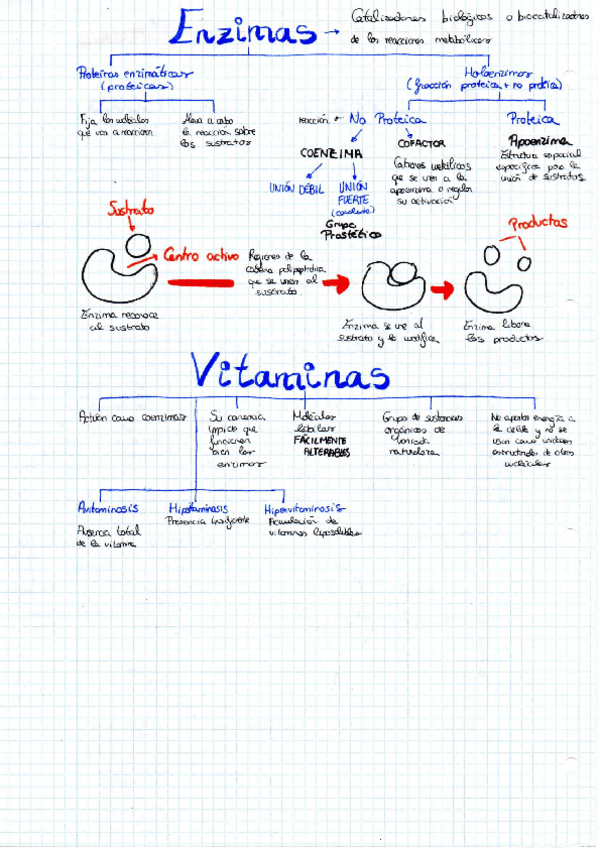 Enzimas → Catalizadores biológicos o biocatalizadores
de las reacciones metabólicas
Proteínas enzimáticas
(proteicas)
Holoenzimas
(fracción proteica + no proteica)
Fija las moléculas
que van a reaccionar
Lleva a cabo
la reacción sobre
los sustratos
No Proteica
Proteica
COENZIMA
UNIÓN DÉBIL
UNIÓN
FUERTE
(covalente)
Grupo
Prostético
COFACTOR
Cationes metálicos
que se unen a la
apoenzima o regulan
su activación
Apoenzima
Estructura espacial
específica para la
unión de sustratos.
Sustrato
Centro activo
Regiones de la
cadena polipeptídica
que se unen al
sustrato.
Productos
Enzima reconoce
al sustrato
Enzima se une al
sustrato y lo modifica
Enzima libera
los productos
Vitaminas
Actúan como coenzimas
Su carencia
impide que
funcionen
bien las
enzimas
Moléculas
lábiles
FÁCILMENTE
ALTERABLES
Grupo de sustancias
orgánicas de
variada
naturaleza
No aportan energía a
la célula y no se
usan como unidades
estructurales de otras
moléculas
Avitaminosis
Ausencia total
de la vitamina
Hipotaminosis
Presencia insuficiente
Hipervitaminosis
Acumulación de
vitaminas liposolubles